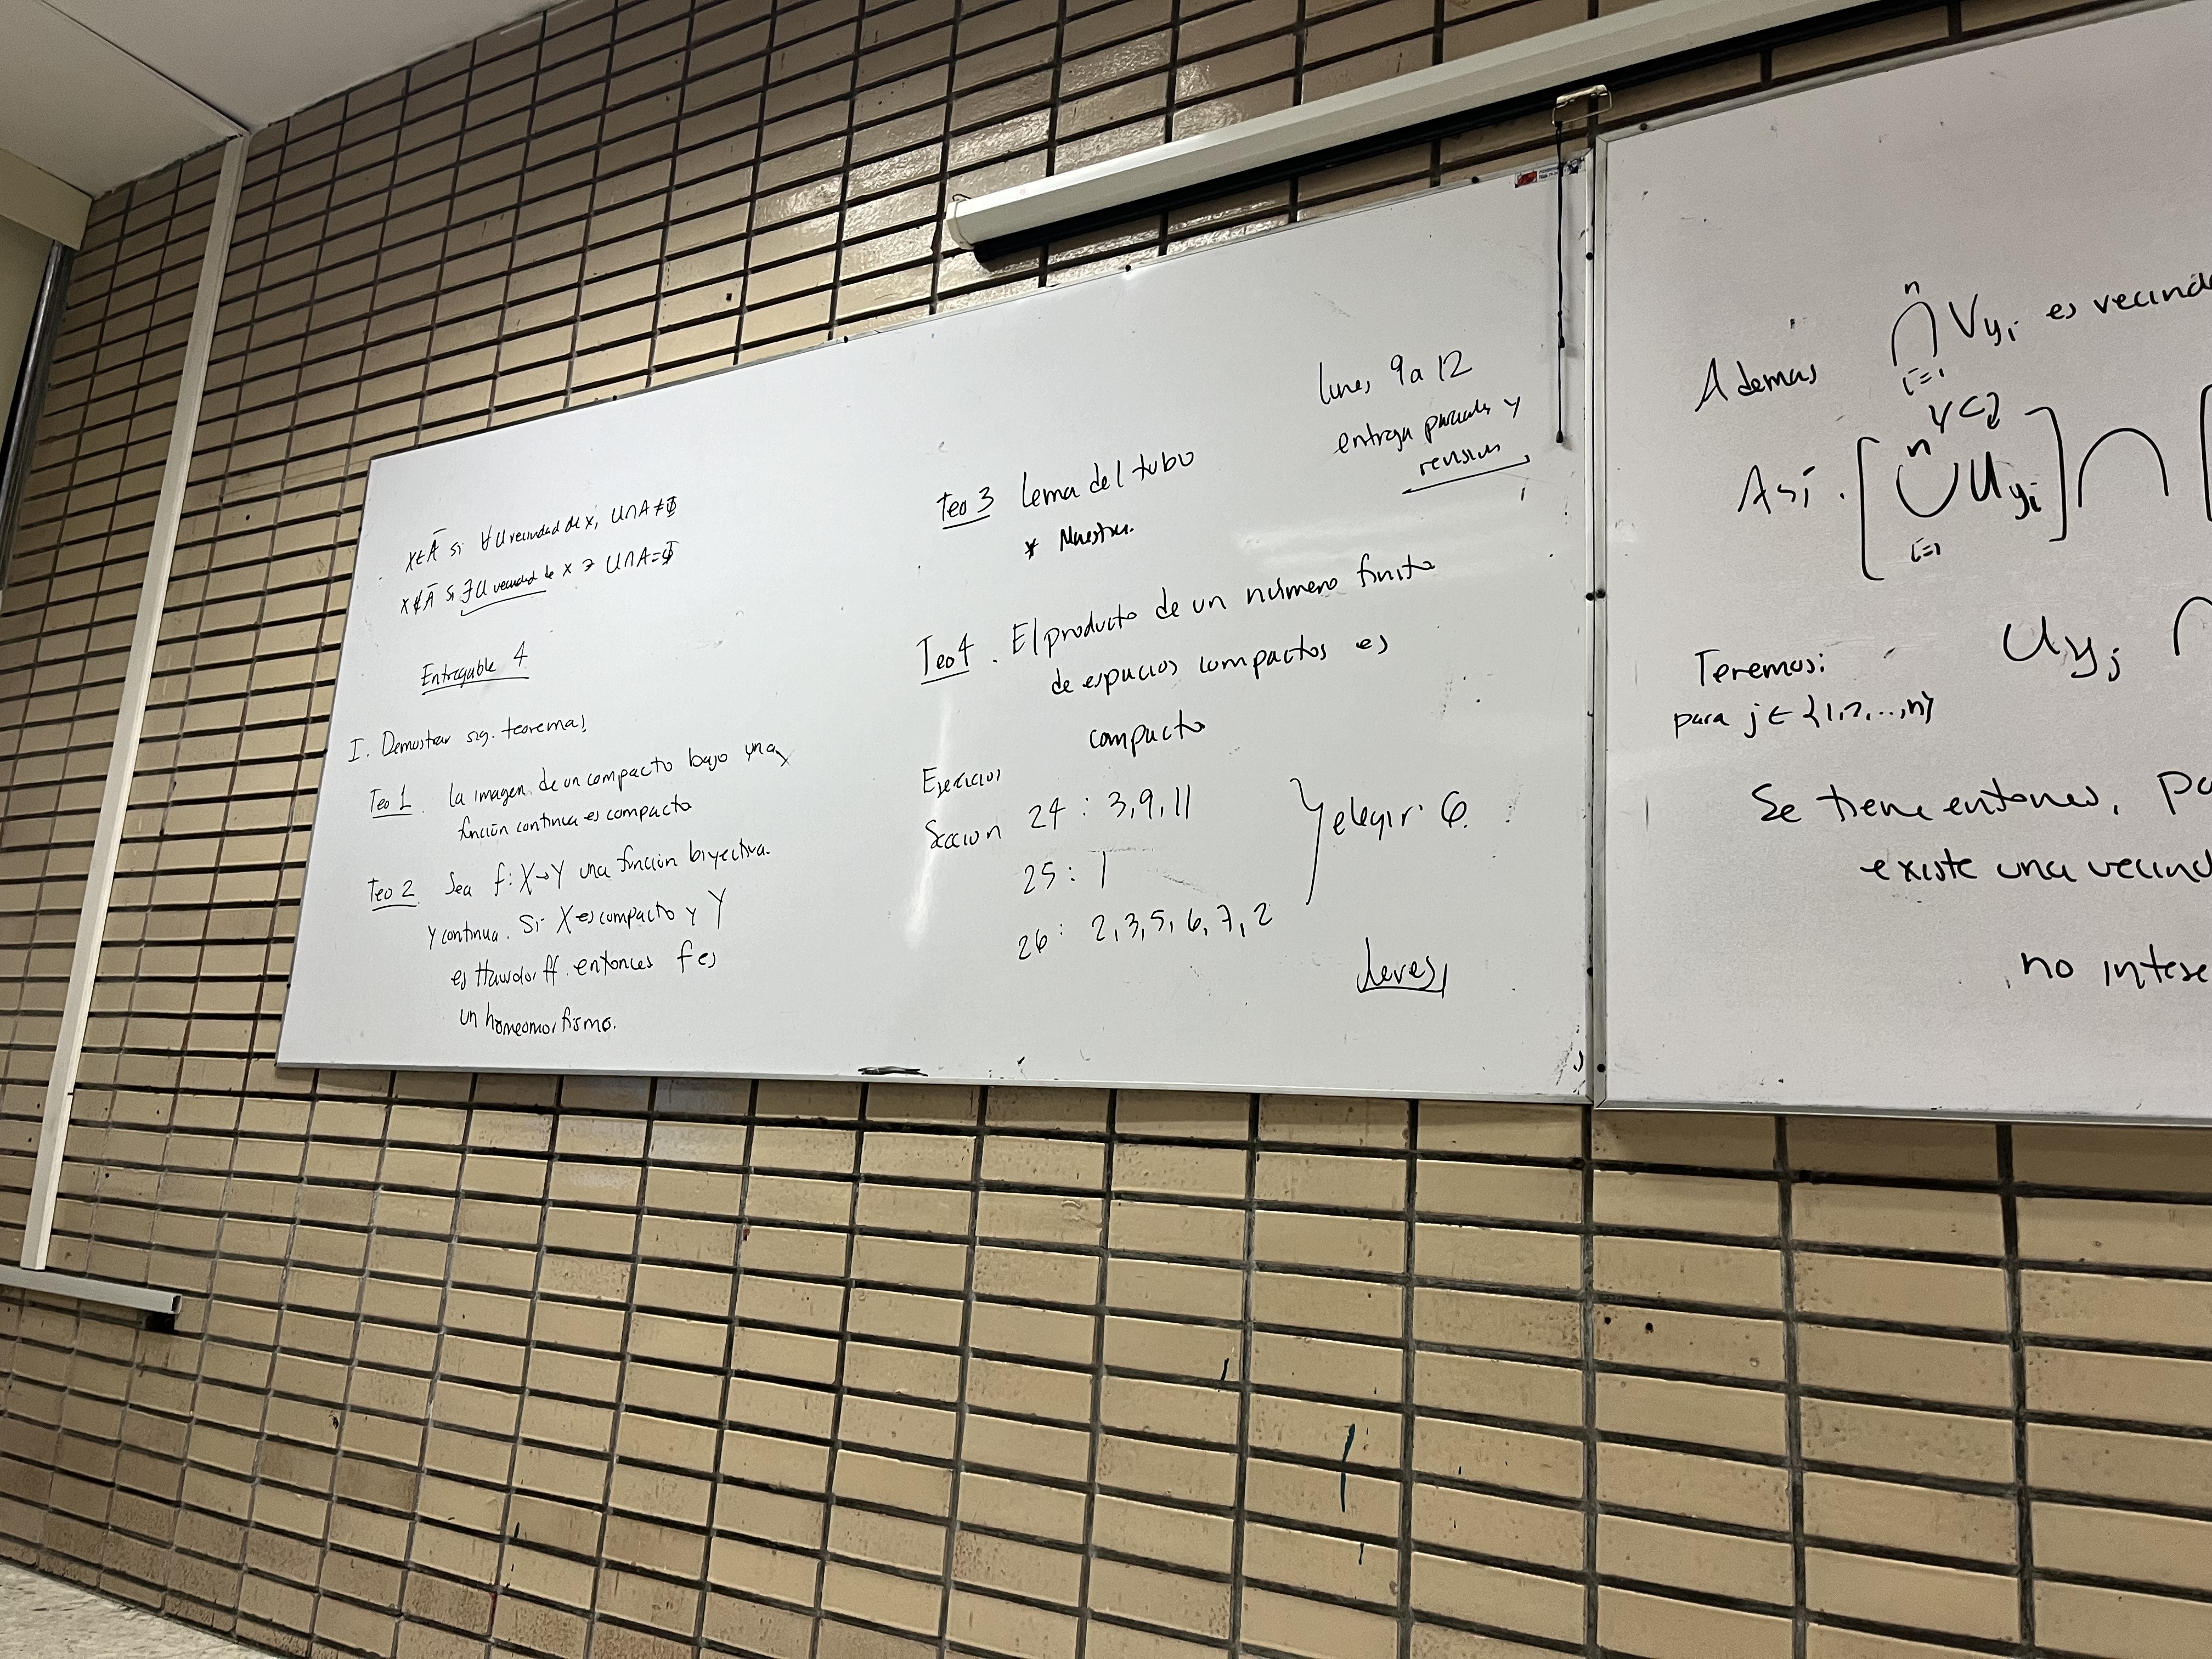 x∈Ā si ∀ U vecindad de x, U∩A≠Φ
x∉Ā si ∃ U vecindad de x ∋ U∩A=Φ
Entregable 4
I. Demostrar sig. teoremas
Teo 1. La imagen de un compacto bajo una
función continua es compacto
Teo 2. Sea f: X→Y una función biyectiva
y continua. Si X es compacto y Y
es Hausdorff. entonces f es
un homeomorfismo.
lunes 9 a 12
entrega parciales y
revision
Teo 3 Lema del tubo
* Muestra.
Teo 4. El producto de un número finito
de espacios compactos es
compacto
Ejercicios
Seccion 24 : 3, 9, 11
25 : 1
26 : 2, 3, 5, 6, 7, 2
elegir 6.
Jueves
n
Además ∩ Vyi es vecind
i=1
Así. [ n ∪ Uyi ] ∩ [
i=1
Tenemos: Uyj ∩
para j ∈ {1,2,...,n}
Se tiene entonces, pa
existe una vecind
no inters